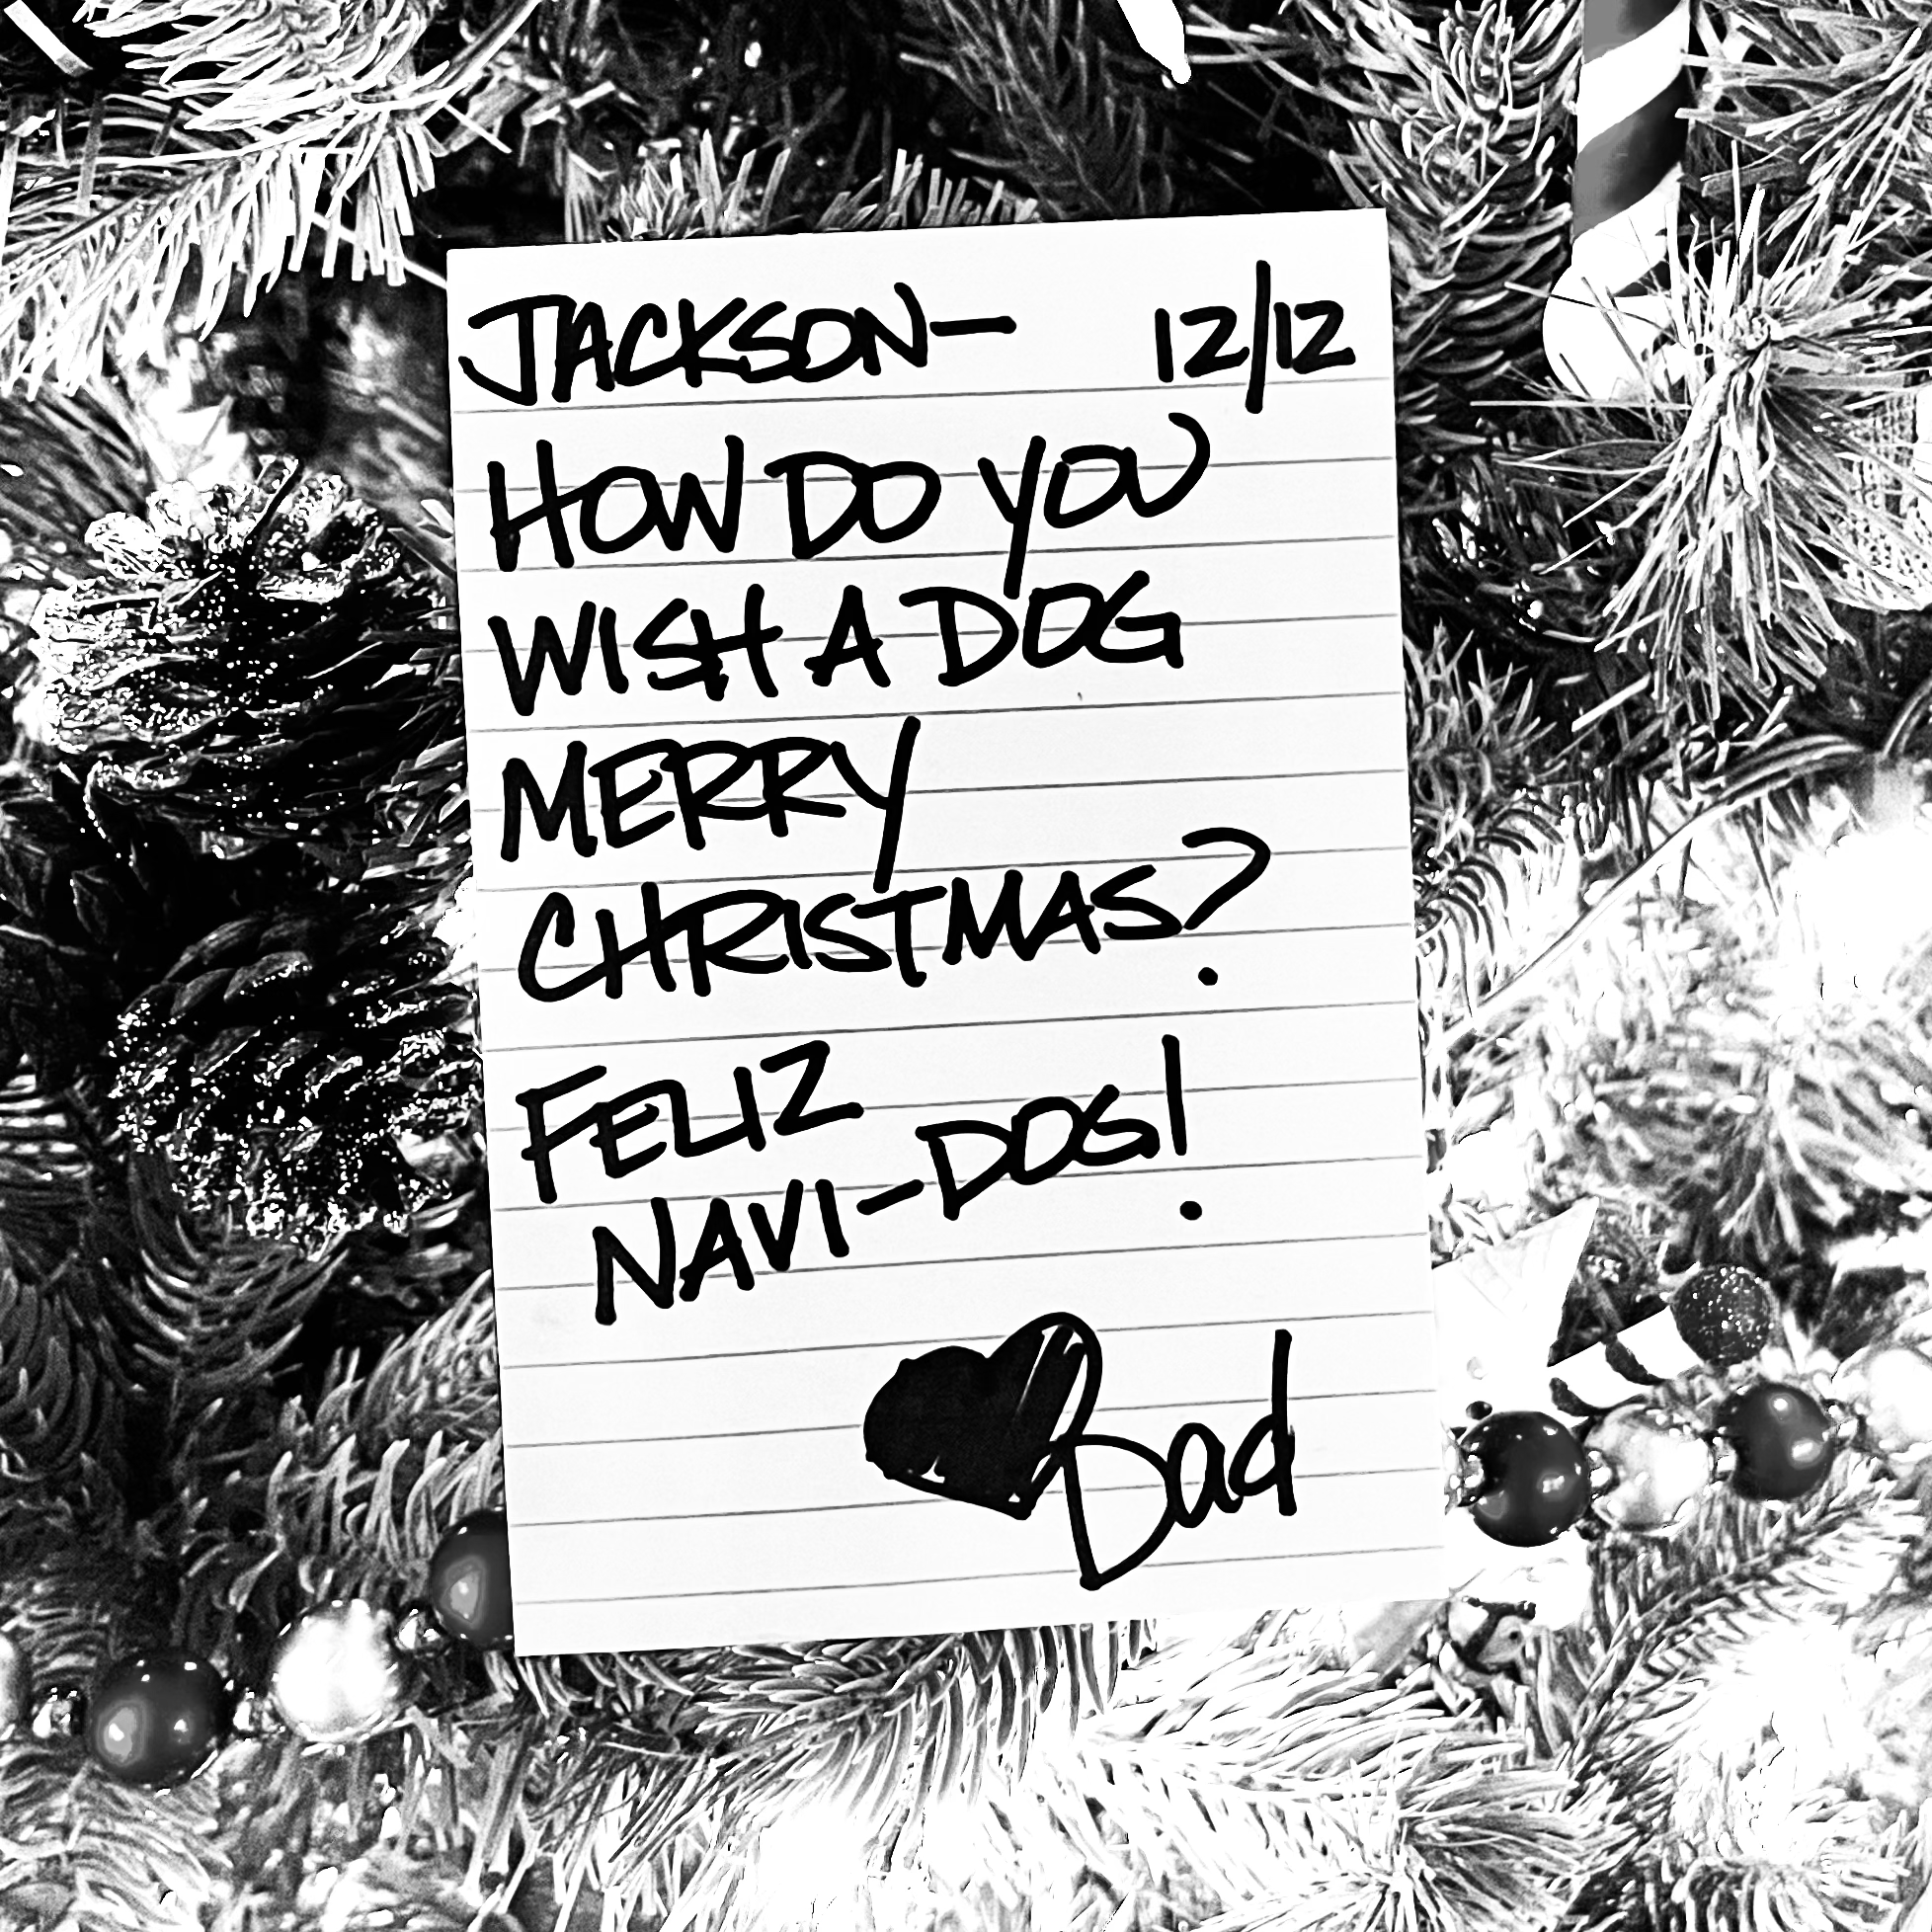 JACKSON— 12/12
HOW DO YOU
WISH A DOG
MERRY
CHRISTMAS?
FELIZ
NAVI-DOG!
Dad